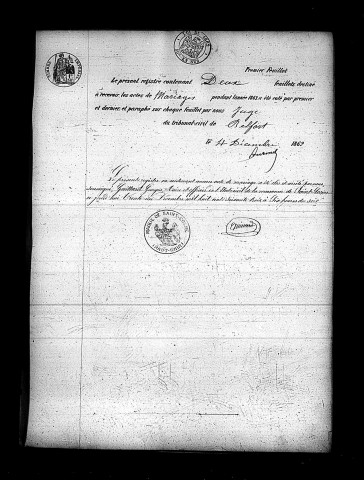 Premier feuillet
Le présent registre contenant Deux feuillets destiné
à recevoir les actes de Mariages pendant l'année 1863 a été coté par premier
et dernier, et paraphé sur chaque feuillet par nous Juge
du tribunal civil de Belfort
le 24 Décembre 1862
Le présent registre ne contenant aucun acte de mariage a été clos et arrêté par nous
Jacques Maire et officier de l'état civil de la commune de Saint
ce jour trente un Décembre mil huit cent soixante trois à six heures du soir
MAIRIE DE SAINT
(HAUT-RHIN)